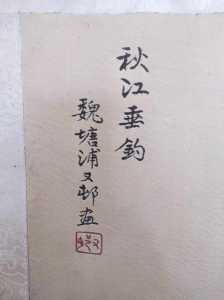 秋江垂钓
魏塘浦又邨画